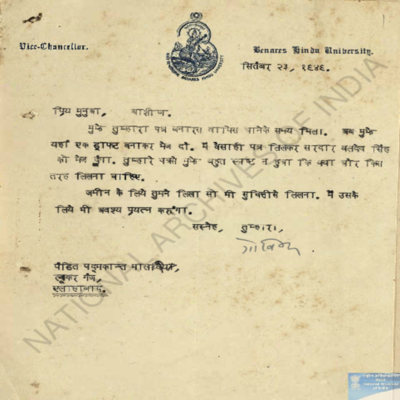 Vice-Chancellor.
Benares Hindu University.
सितंबर २३, १९४६.
प्रिय मुनुवा, आशीष.
मुझे तुम्हारा पत्र बनारस वापिस आनेके समय मिला. अब मुझे
यहाँ एक ड्राफ्ट बनाकर भेज दो. मैं वैसाही पत्र लिखकर सरदार बलदेव सिंह
को भेज दूंगा. तुम्हारे पत्रसे मुझे बहुत स्पष्ट न हुवा कि क्या और किस
तरह लिखना चाहिए.
जमीन के लिये तुमने लिखा सो भी लिखना. मैं उसके
लिये भी अवश्य प्रयत्न करूंगा.
सस्नेह, तुम्हारा,
गोविन्द
पंडित पद्मकान्त मालवीय,
गंज,
इलाहाबाद.
NATIONAL ARCHIVES OF INDIA